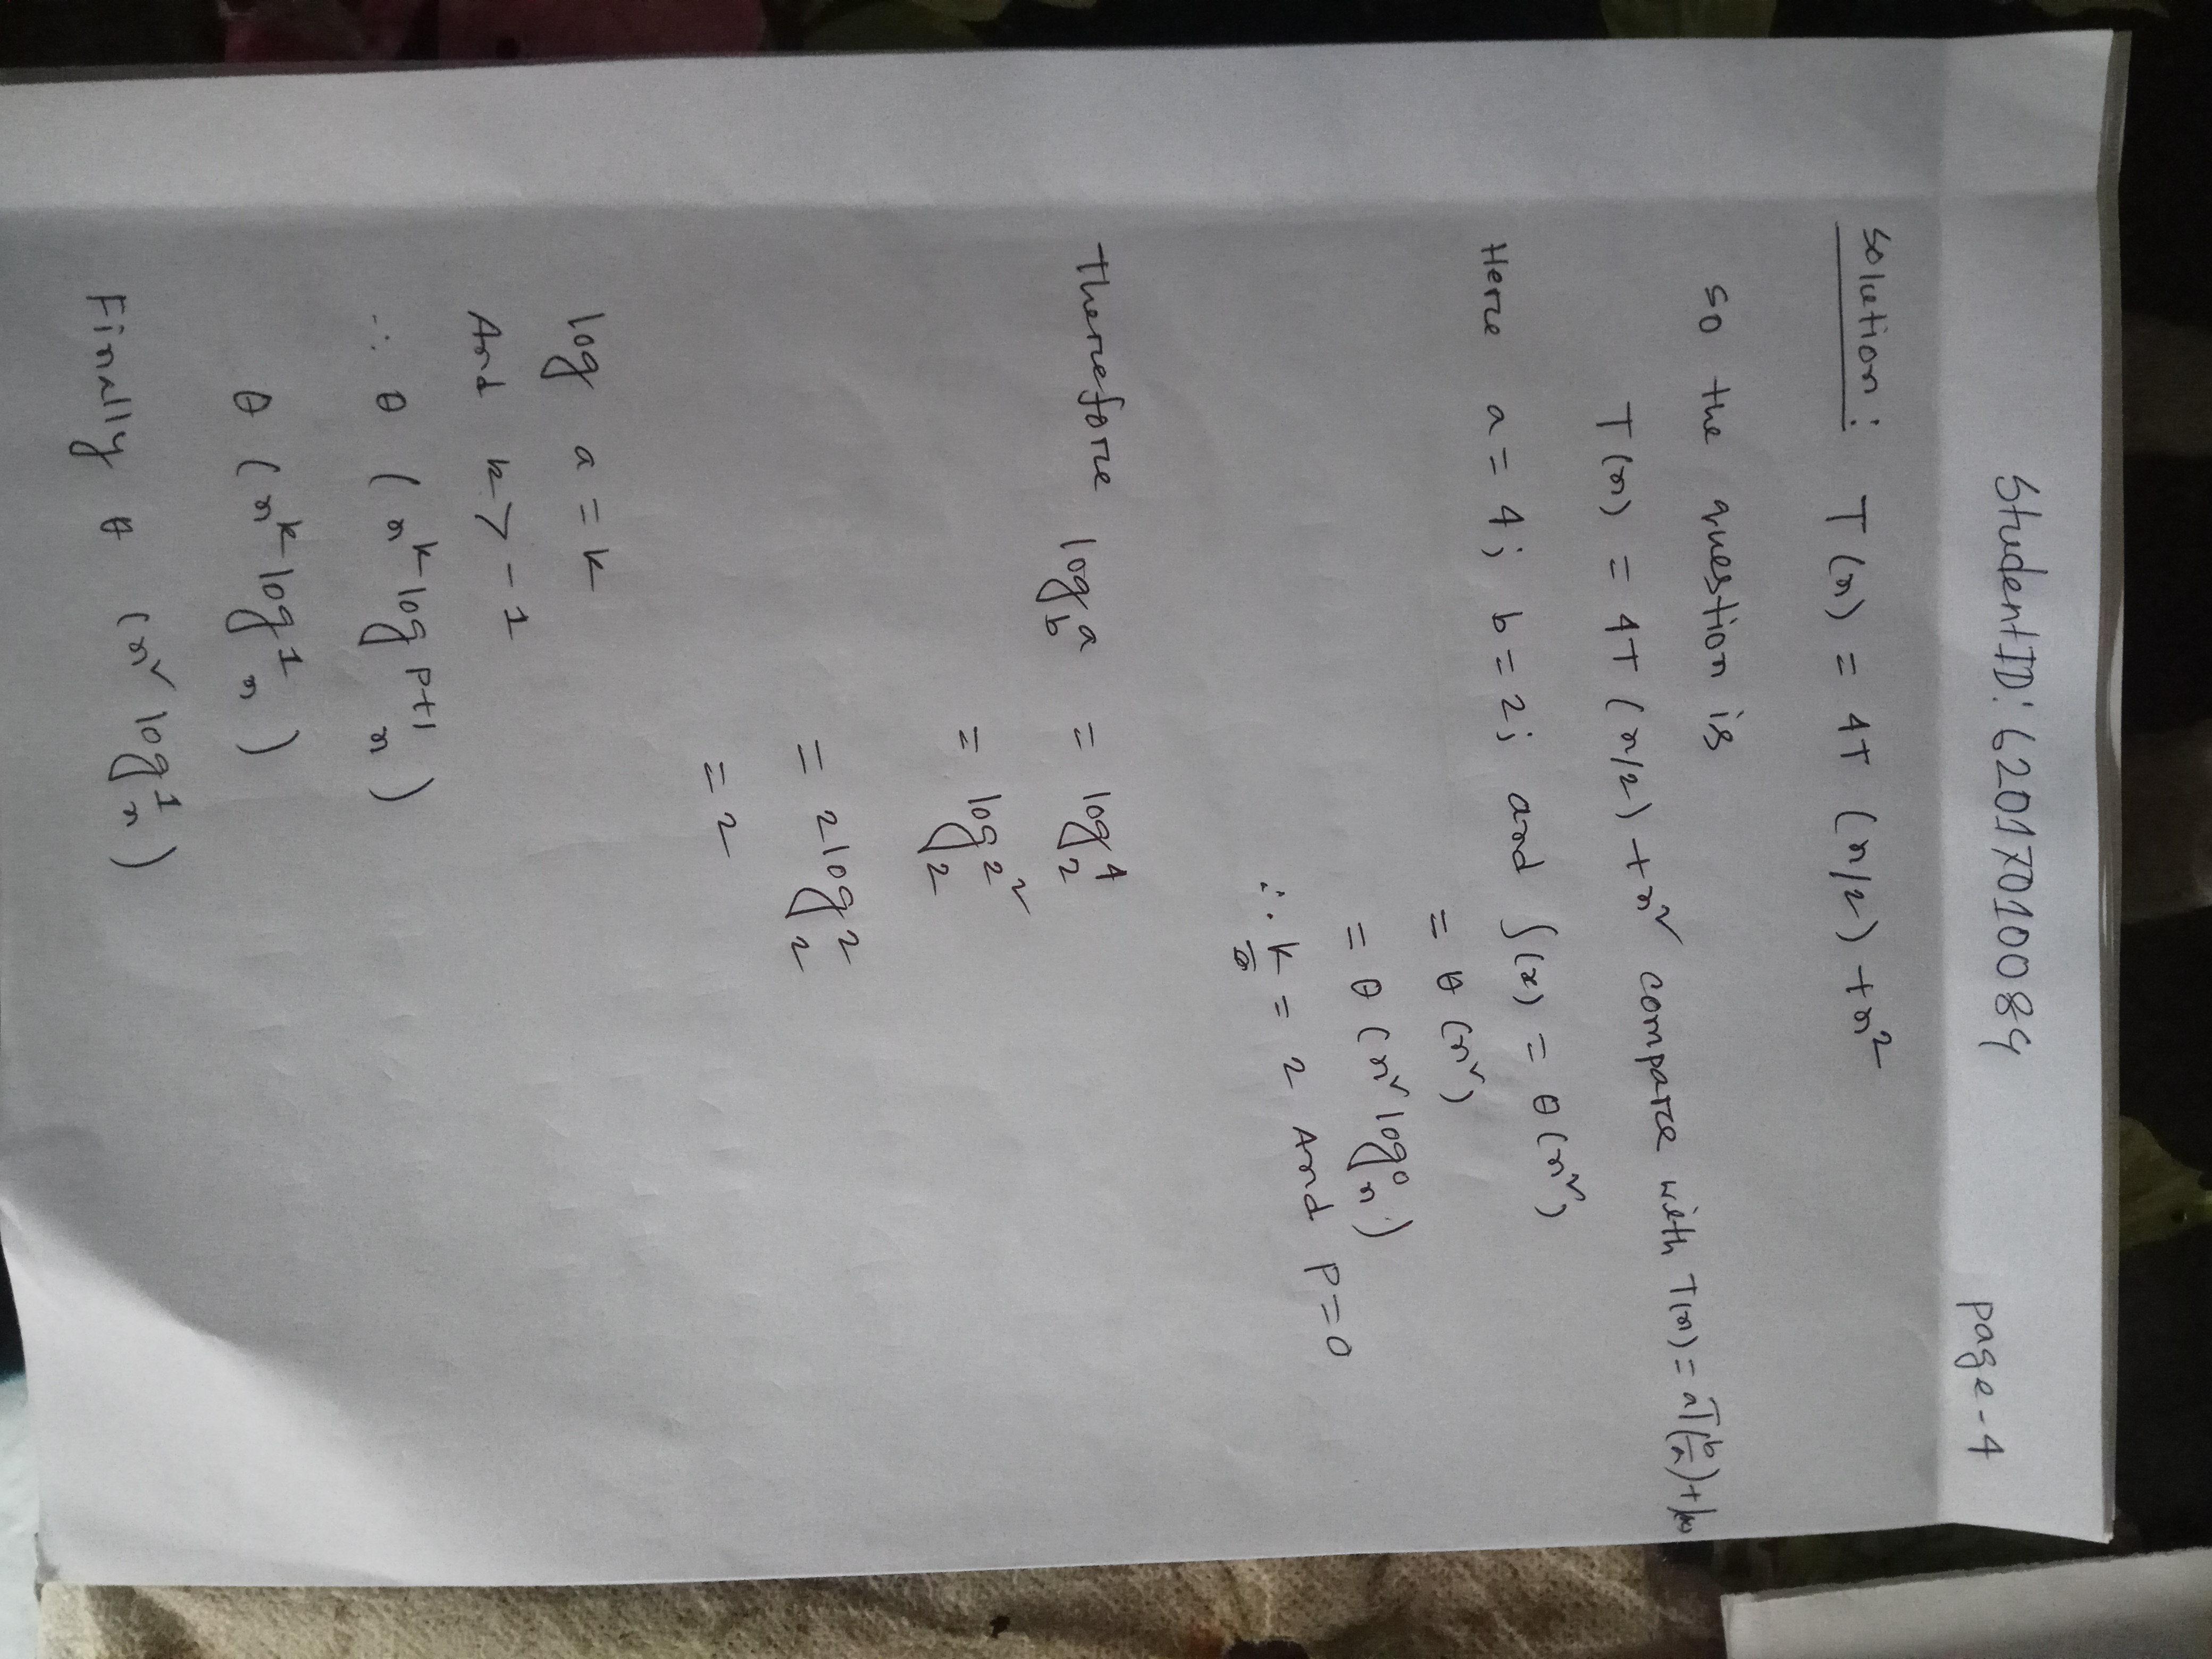 Student ID: 62017010084
page-4
Solution: T(n) = 4T (n/2) + n²
so the question is
T(n) = 4T (n/2) + n² compare with T(n) = aT(b/n) +
Here a = 4; b = 2; and f(x) = θ(n²)
= θ (n²)
= θ (n² log⁰ n)
∴ k = 2 And P = 0
Therefore log_b a = log_2 4
= log_2 2²
= 2 log_2 2
= 2
log a = k
And k > -1
∴ θ (n^k log^{P+1} n)
θ (n^k log¹ n)
Finally θ (n² log¹ n)